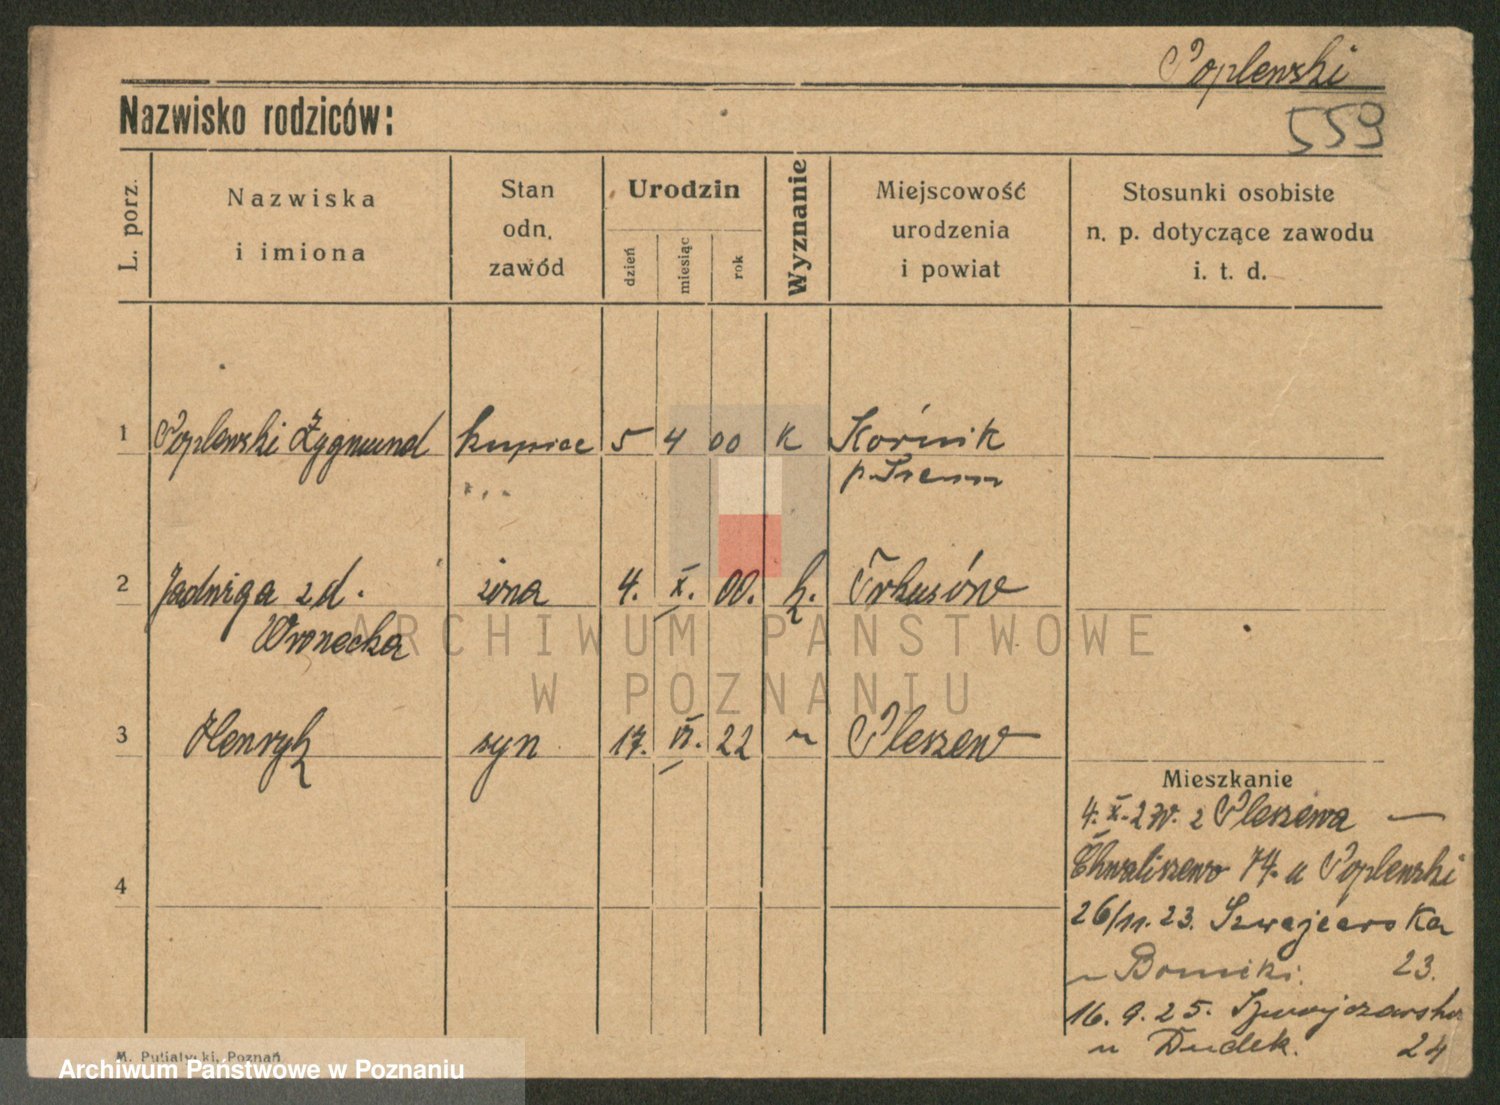 Poplewski
Nazwisko rodziców:
559
L. porz.
Nazwiska
i imiona
Stan
odn.
zawód
Urodzin
dzień
miesiąc
rok
Wyznanie
Miejscowość
urodzenia
i powiat
Stosunki osobiste
n. p. dotyczące zawodu
i. t. d.
1 Poplewski Zygmund kupiec 5 4 00 k Kórnik
p. Srem
2 Jadwiga z d. żona 4. X. 00. k.
Wronecka
ARCHIWUM PAŃSTWOWE
W POZNANIU
3 Henryk syn 17. VI. 22 " Pleszew
Mieszkanie
4. X. 2 z Pleszewa —
Chwaliszewo 74. u Poplewski
4
26/11. 23. Szwajcarska
u 23.
16. 9. 25. Szwajczarska
u Dudek. 24
M. Putiatycki, Poznań
Archiwum Państwowe w Poznaniu